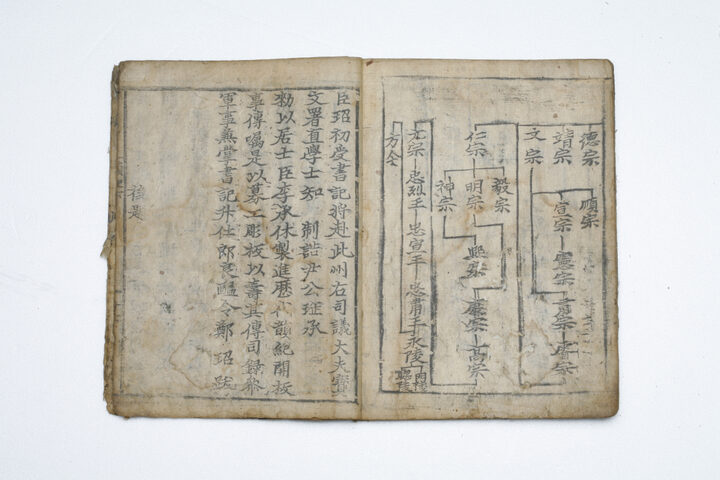 德宗
順宗
靖宗
宣宗
宗
肅宗
睿宗
文宗
毅宗
仁宗
明宗
熙宗
康宗
高宗
神宗
元宗
忠烈王
忠宣王
忠肅王
永陵
方今
臣玿初受書記將赴此州右司議大夫寶
文署直學士知 制誥尹公珤承
勑以居士臣李承休製進歷代韻紀開板
事傳囑是以募工彫板以壽其傳司錄參
軍事兼掌書記升仕郎良醞令鄭玿跋
後是